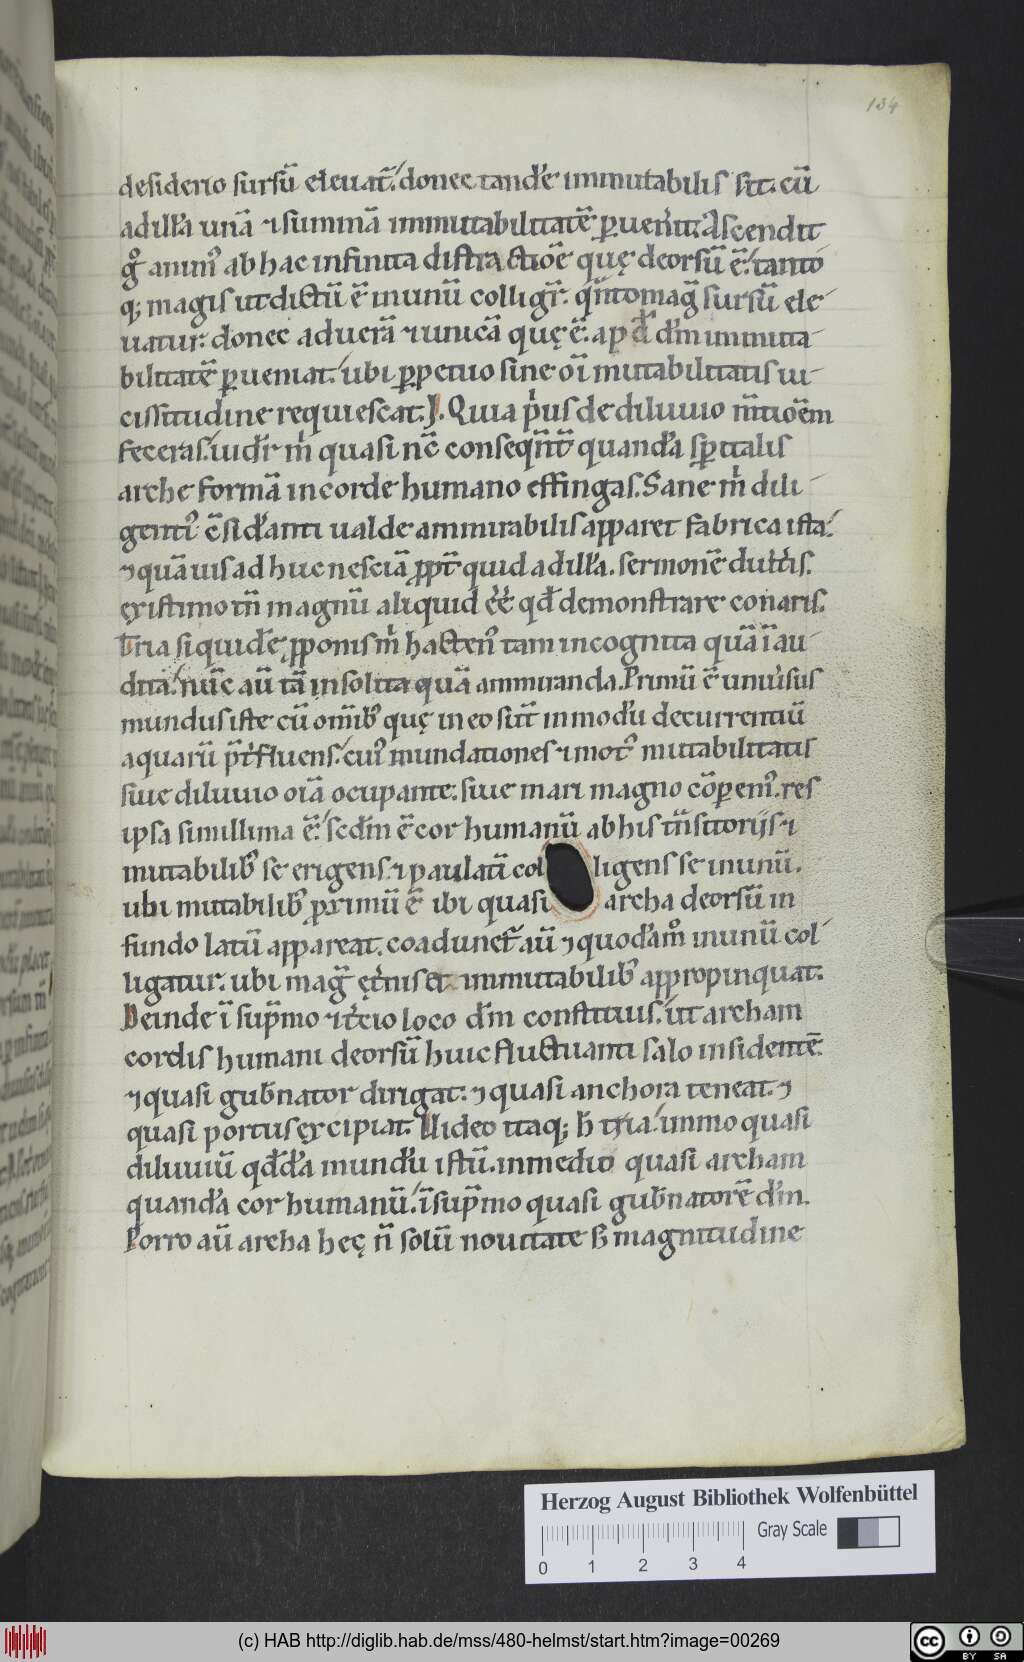 134
desiderio sursū eleuat̄. donec tandē immutabilis sit. cū
ad illā unā ⁊ summā immutabilitatē ꝑuenit. Ascendit
gͦ animꝰ ab hac infinita distractiōe quę deorsū ē. tanto
q; magis ut dictū ē in unū colligr̄. q̄nto maḡ sursū ele
uatur. donec ad uerā ⁊ unicā quę ē. apd̄ dm̄ immuta
bilitatē ꝑueniat. ubi ꝑpetuo sine oī mutabilitatis ui
cissitudine requiescat. I. Quia pͥus de diluuio m̄tioēm
feceras. uidr̄ mͥ quasi nc̄ conseqn̄t̄ quandā sp̄italis
arche formā in corde humano effingas. Sane mͥ dili
gentiꝰ c̄sidanti ualde ammirabilis apparet fabrica ista.
⁊ quāuis adhuc nesciā ꝓpt̄ quid ad illā. sermonē dux̄is.
ęxistimo tn̄ magnū aliquid eē qd̄ demonstrare conaris.
Tria siquidē ꝓponis mͥ hactenꝰ tam incognita quā īau
dita. nūc aū tā insolita quā ammiranda. Primū ē uniūsus
mundus iste cū om̄ibꝰ quę in eo sūt in modū decurrentiū
aquarū p̄t̄fluens. cuiꝰ inundationes ⁊ motꝰ mutabilitatis
siue diluuio oīa ocupante. siue mari magno cōpenꝰ. res
ipsa simillima ē. scdm̄ ē cor humanū ab his tn̄sitoriis ⁊
mutabilibꝰ se erigens. ⁊ paulatī col ligens se in unū.
ubi mutabilibꝰ ꝓximū ē ibi quasi archa deorsū in
fundo latū appareat. coadunet̄ aū ⁊ quodāmͦ in unū col
ligatur. ubi maḡ ęt̄nis et immutabilibꝰ appropinquat.
Deinde ī sup̄mo ⁊ t̄cio loco dm̄ constituis. ut archam
cordis humani deorsū huic fluctuanti salo insidentē
⁊ quasi gub̄nator dirigat. ⁊ quasi anchora teneat. ⁊
quasi portus ęxcipiat. Uideo itaq; h̄ tria. immo quasi
diluuiū qd̄dā mundū istū. in medio quasi archam
quandā cor humanū. ī sup̄mo quasi gub̄natorē dm̄.
Porro aū archa hęc n̄ solū nouitate s; magnitudine
Herzog August Bibliothek Wolfenbüttel
Gray Scale
0 1 2 3 4
(c) HAB http://diglib.hab.de/mss/480-helmst/start.htm?image=00269
cc BY SA